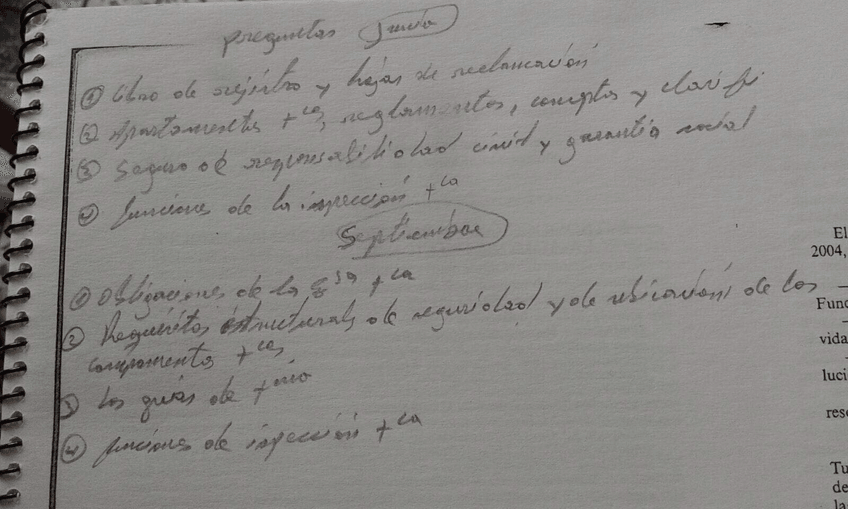 preguntas Junio
① libro de registro y hojas de reclamación
② Apartamentos +cos, reglamentos, conceptos y clasifi
③ Seguro de responsabilidad civil y garantía social
④ funciones de la inspección +ca
Septiembre
① Obligaciones de la Esa +ca
② Requisitos estructurals de seguridad y de ubicación de los
campamentos +cos
③ los guías de +mo
④ funciones de inspección +ca
El
2004,
Func
vida
luci
reso
Tu
de
la